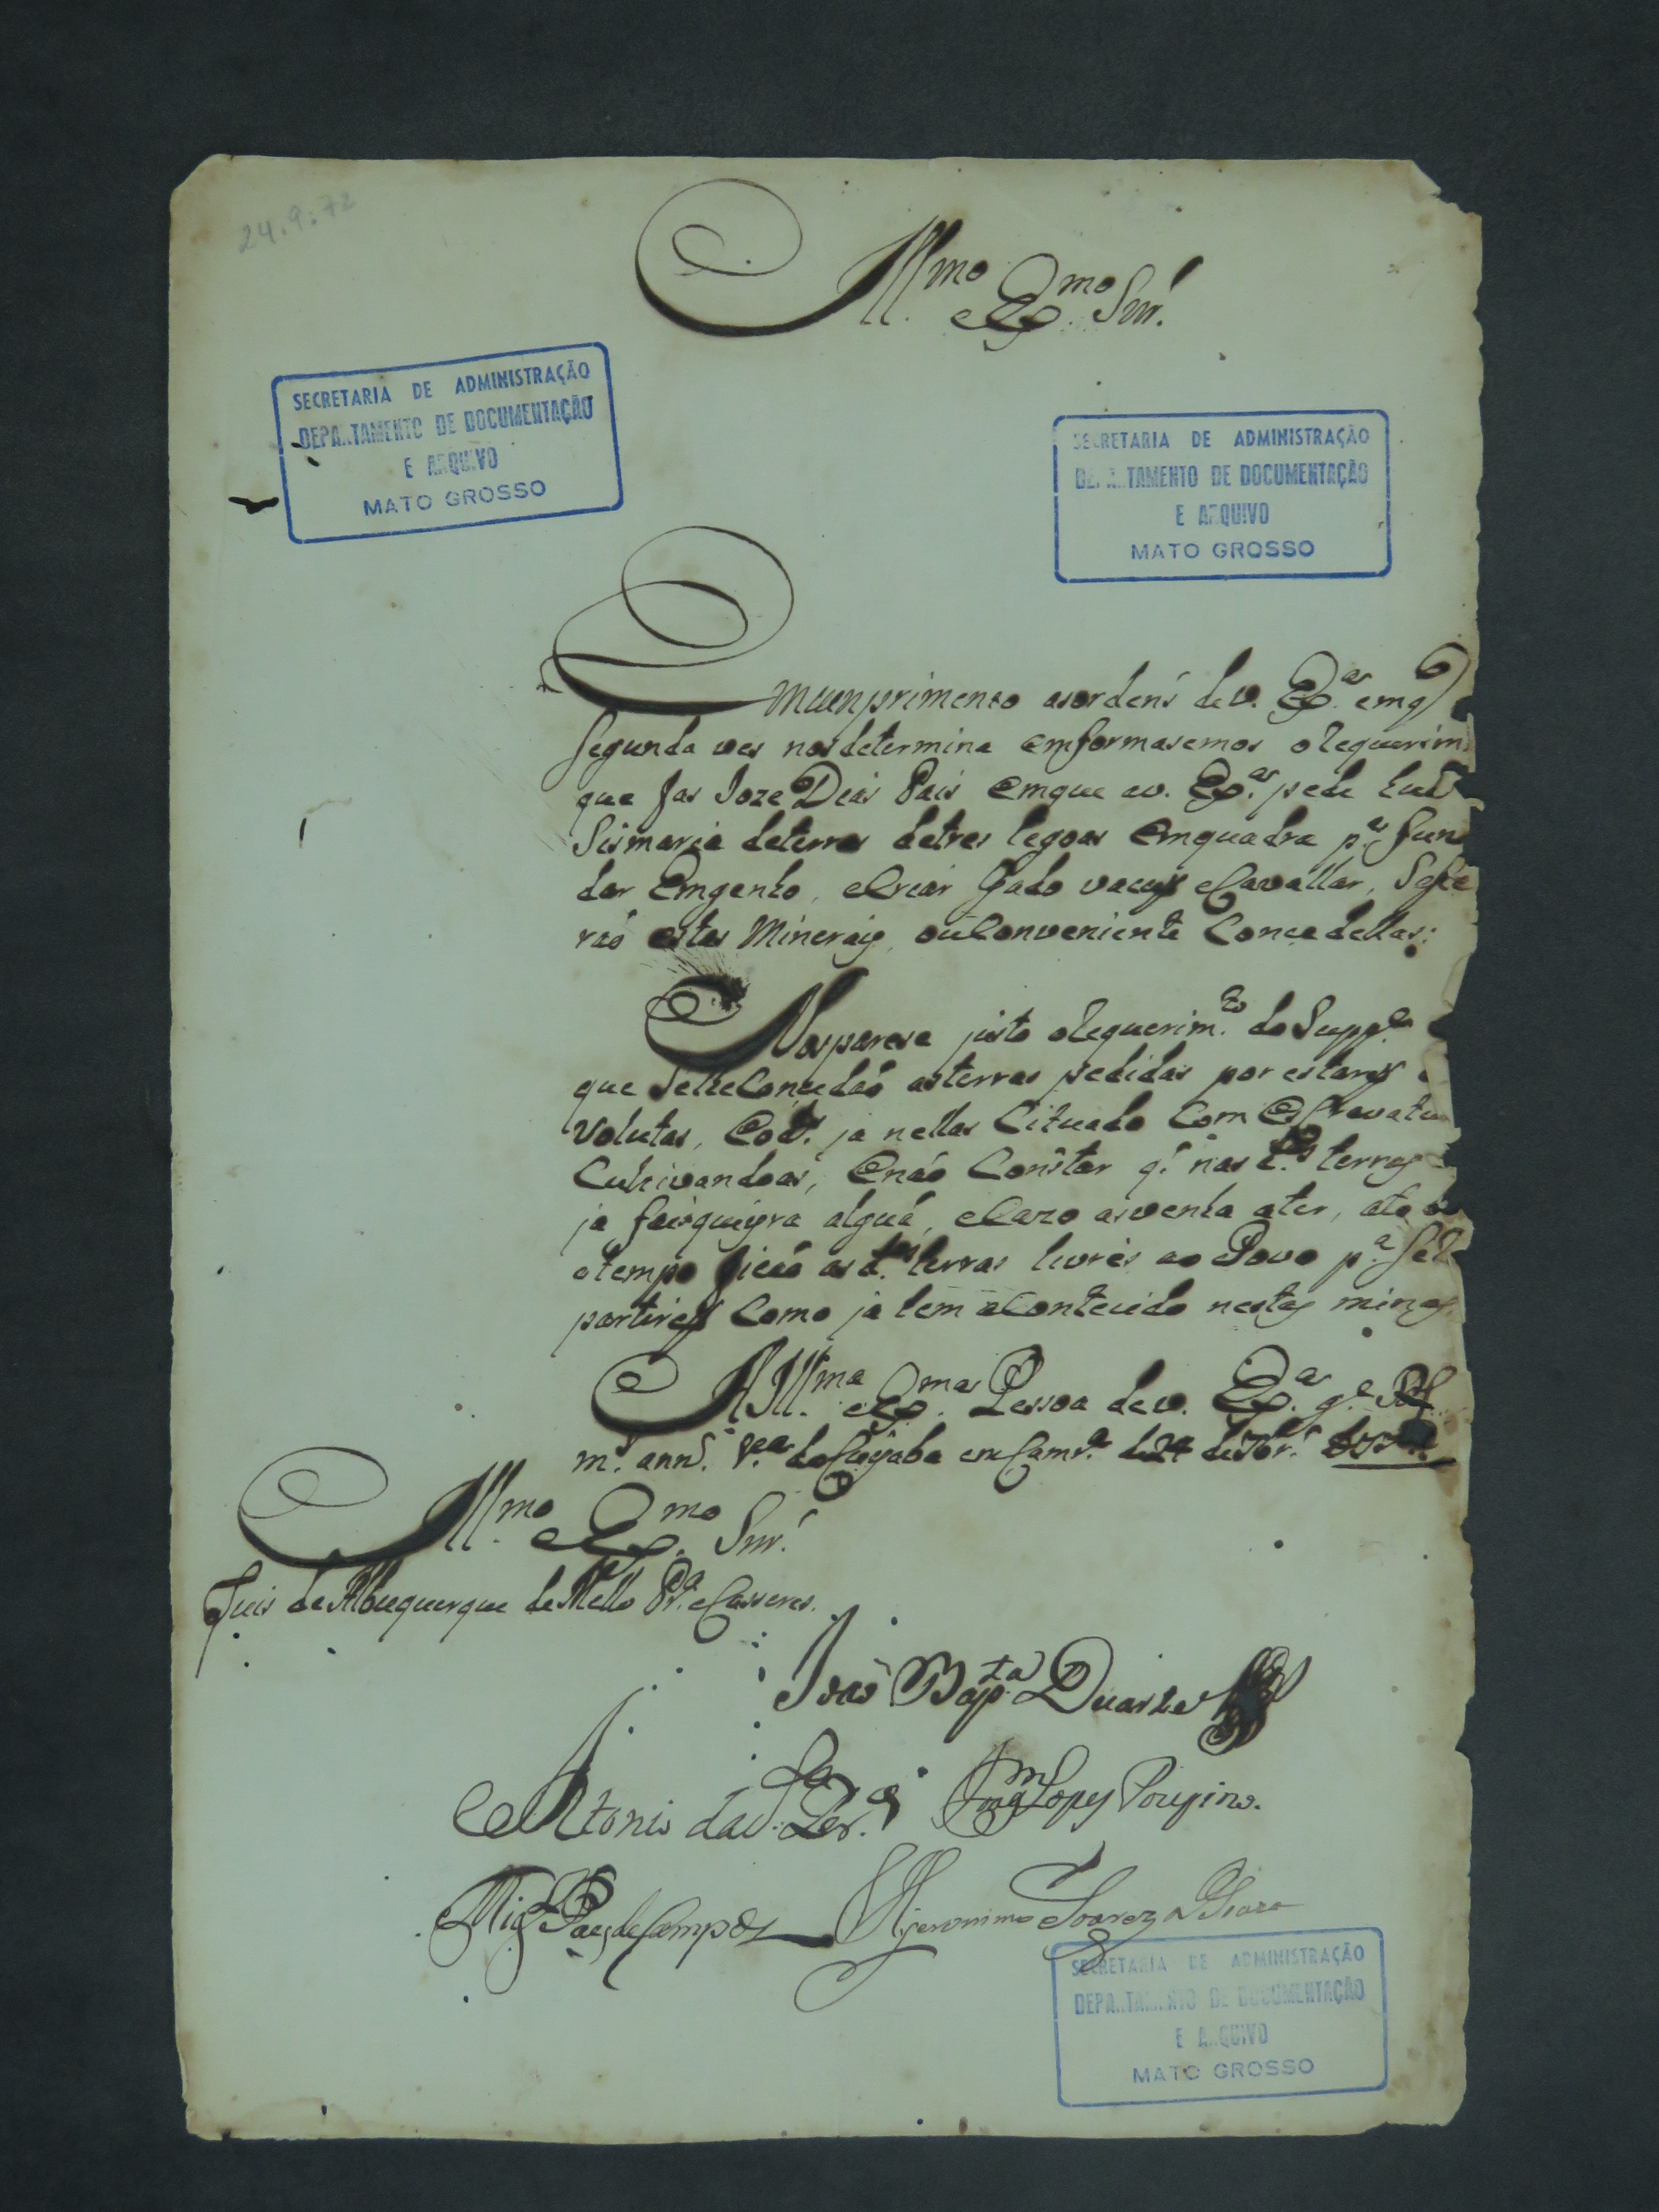 24.9:72
Illmo. e Exmo. Snr.
SECRETARIA DE ADMINISTRAÇÃO
DEPARTAMENTO DE DOCUMENTAÇÃO
E ARQUIVO
MATO GROSSO
SECRETARIA DE ADMINISTRAÇÃO
DEPARTAMENTO DE DOCUMENTAÇÃO
E ARQUIVO
MATO GROSSO
Emcunprimento asordens de V. Exa. emq
segunda ves nosdetermina emformasemos oRequerim
que fas Joze Dias Pais emque av. Exa. pede
Sismaria deterras detres legoas emquadra pa. fun
dar Emgenho, eCriar Gado vacuȷ̃ eCavallar, Se
raó estas Mineraiȷ̃, ouConveniente Concedellas:
Nosparese justo oRequerim.to do Suppe.
que SelheConcedaó asterras pedidas por estarem
volutas, eo d. ja nellas Cituado Com Escravatu
Cultivandoas, enaó Constar q. nas d.as terras
ja faisqueyra alguá, eCazo asvenha ater, ato
otempo ficaó as d.as terras livres ao Povo pa. seR
partirem Como ja tem aContecido nestas minas.
A Illma. e Exma. Pessoa de V. Exa. g.e
m.s ann.s V.a do Cuyaba em Cam.ra de 24 de 7br.o
Illmo. e Exmo. Snr.
Luis de Albuquerque de Mello Pra. e Casseres.
Joaõ Bap.ta Duarte
Antonio da S.a Per.a
Lopes
Mig.l Paes de Campos
Hyeronimo Soarez
SECRETARIA DE ADMINISTRAÇÃO
DEPARTAMENTO DE DOCUMENTAÇÃO
E ARQUIVO
MATO GROSSO